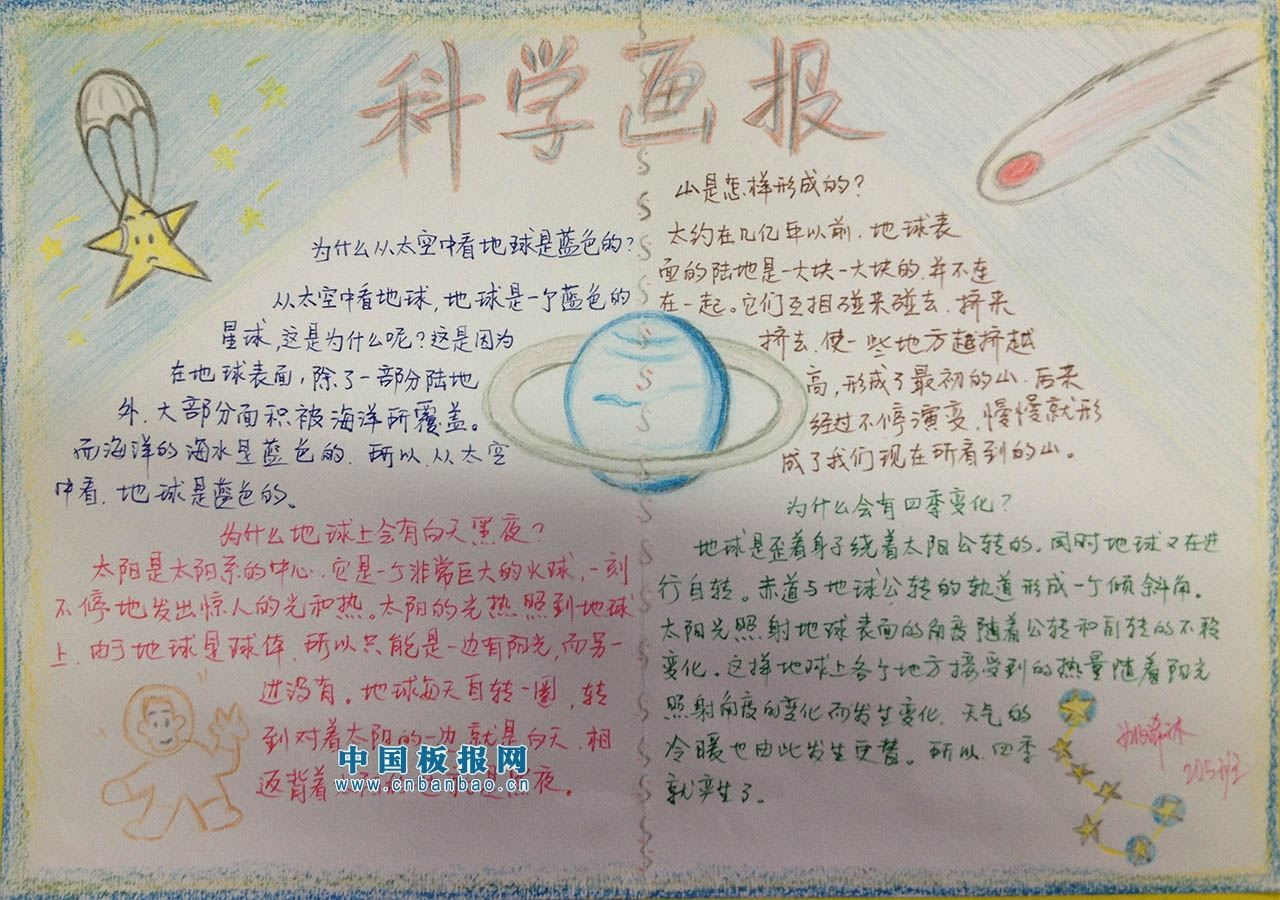 科学画报
为什么从太空中看地球是蓝色的?
从太空中看地球,地球是一个蓝色的
星球,这是为什么呢?这是因为
在地球表面,除了一部分陆地
外,大部分面积被海洋所覆盖。
而海洋的海水是蓝色的,所以,从太空
中看,地球是蓝色的。
为什么地球上会有白天黑夜?
太阳是太阳系的中心,它是一个非常巨大的火球,一刻
不停地发出惊人的光和热。太阳的光热照到地球
上,由于地球是球体,所以只能是一边有阳光,而另一
边没有。地球每天自转一圈,转
到对着太阳的一边就是白天,相
返背着 是黑夜。
山是怎样形成的?
太约在几亿年以前,地球表
面的陆地是一大块一大块的,并不连
在一起。它们互相碰来碰去,挤来
挤去,使一些地方越挤越
高,形成了最初的山,后来
经过不停演变,慢慢就形
成了我们现在所看到的山。
为什么会有四季变化?
地球是歪着身子绕着太阳公转的,同时地球又在进
行自转。赤道与地球公转的轨道形成一个倾斜角。
太阳光照射地球表面的角度随着公转和自转的不
变化。这样地球上各个地方接受到的热量随着阳光
照射角度的变化而发生变化,天气的
冷暖也由此发生更替。所以,四季
就产生了。
205班
中国板报网
www.cnbanbao.cn